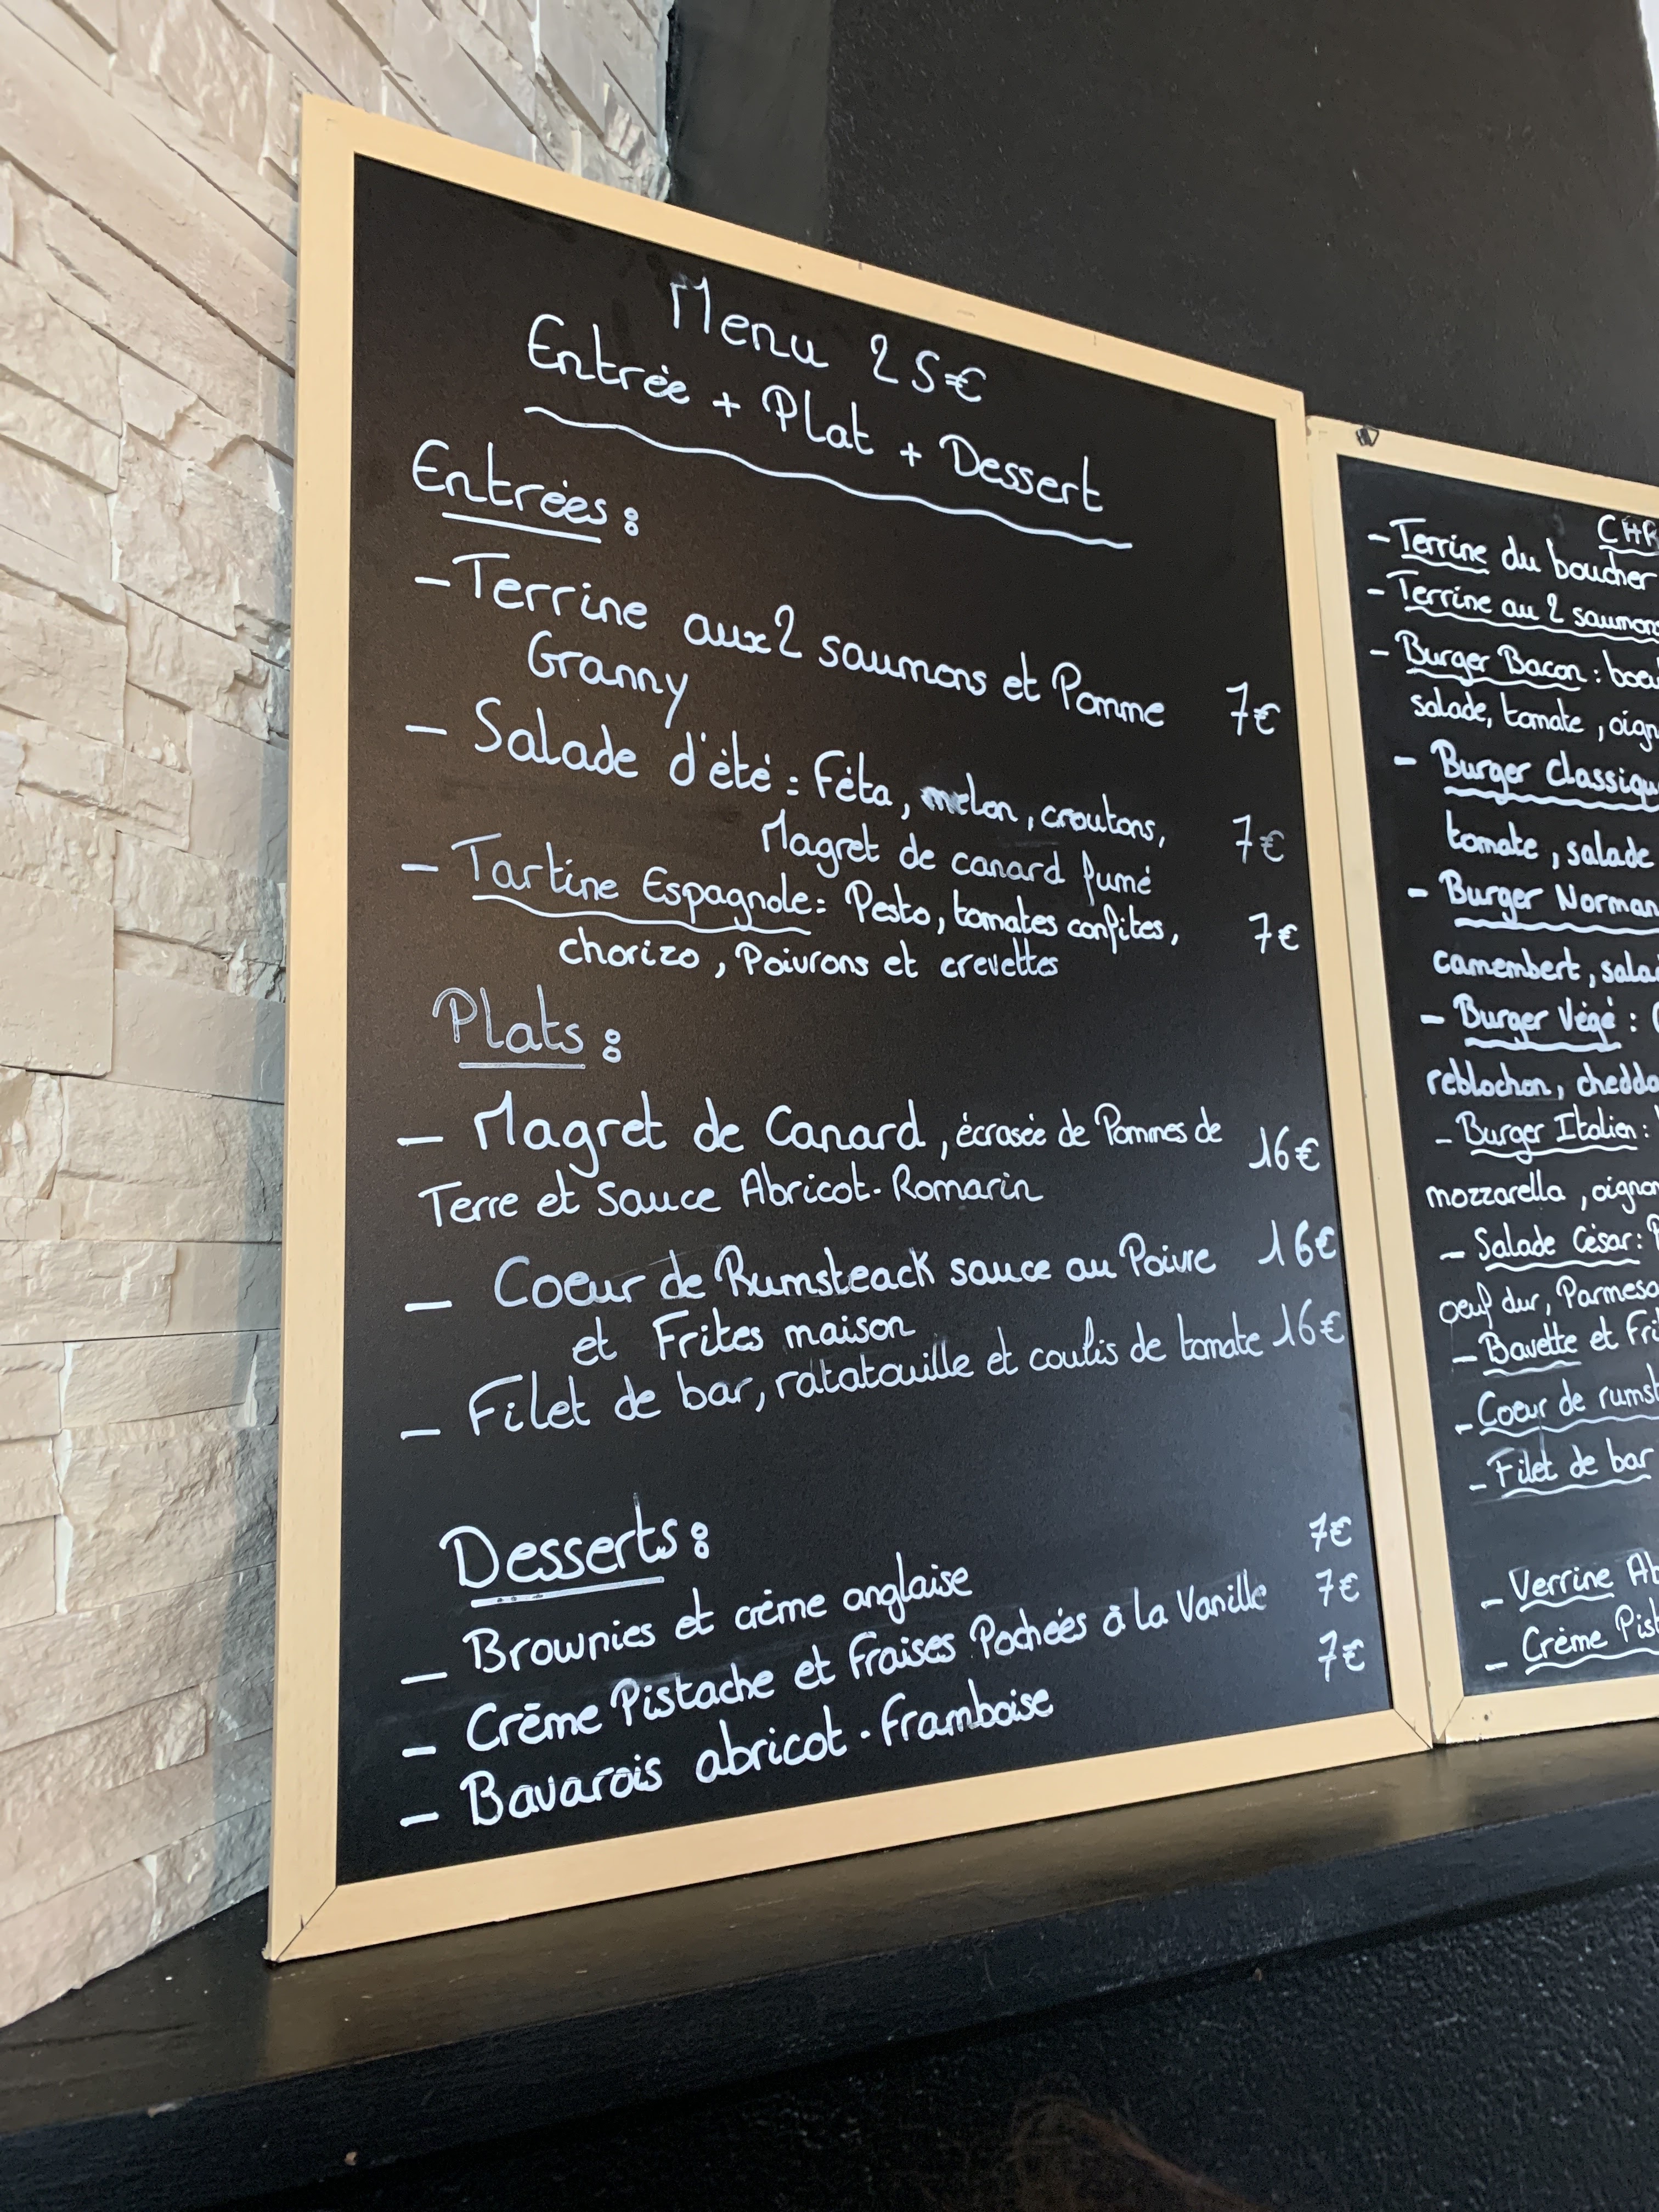 Menu 25€
Entrée + Plat + Dessert
Entrées :
- Terrine aux 2 saumons et Pomme 7€
Granny
- Salade d'été : Féta, melon, croutons, 7€
Magret de canard fumé
- Tartine Espagnole : Pesto, tomates confites, 7€
chorizo, Poivrons et crevettes
Plats :
- Magret de Canard, écrasée de Pommes de 16€
Terre et Sauce Abricot-Romarin
- Coeur de Rumsteack sauce au Poivre 16€
et Frites maison
- Filet de bar, ratatouille et coulis de tomate 16€
Desserts :
- Brownies et crème anglaise 7€
- Crème Pistache et Fraises Pochées à la Vanille 7€
- Bavarois abricot-framboise 7€
- Terrine du boucher
- Terrine au 2 saumons
- Burger Bacon :
salade, tomate, 
- Burger 
tomate, salade
- Burger 
camembert, 
- Burger Végé :
reblochon, 
- Burger Italien :
mozzarella, 
- Salade César :
oeuf dur, 
- Bavette et
- Coeur de
- Filet de bar
- Verrine
- Crème